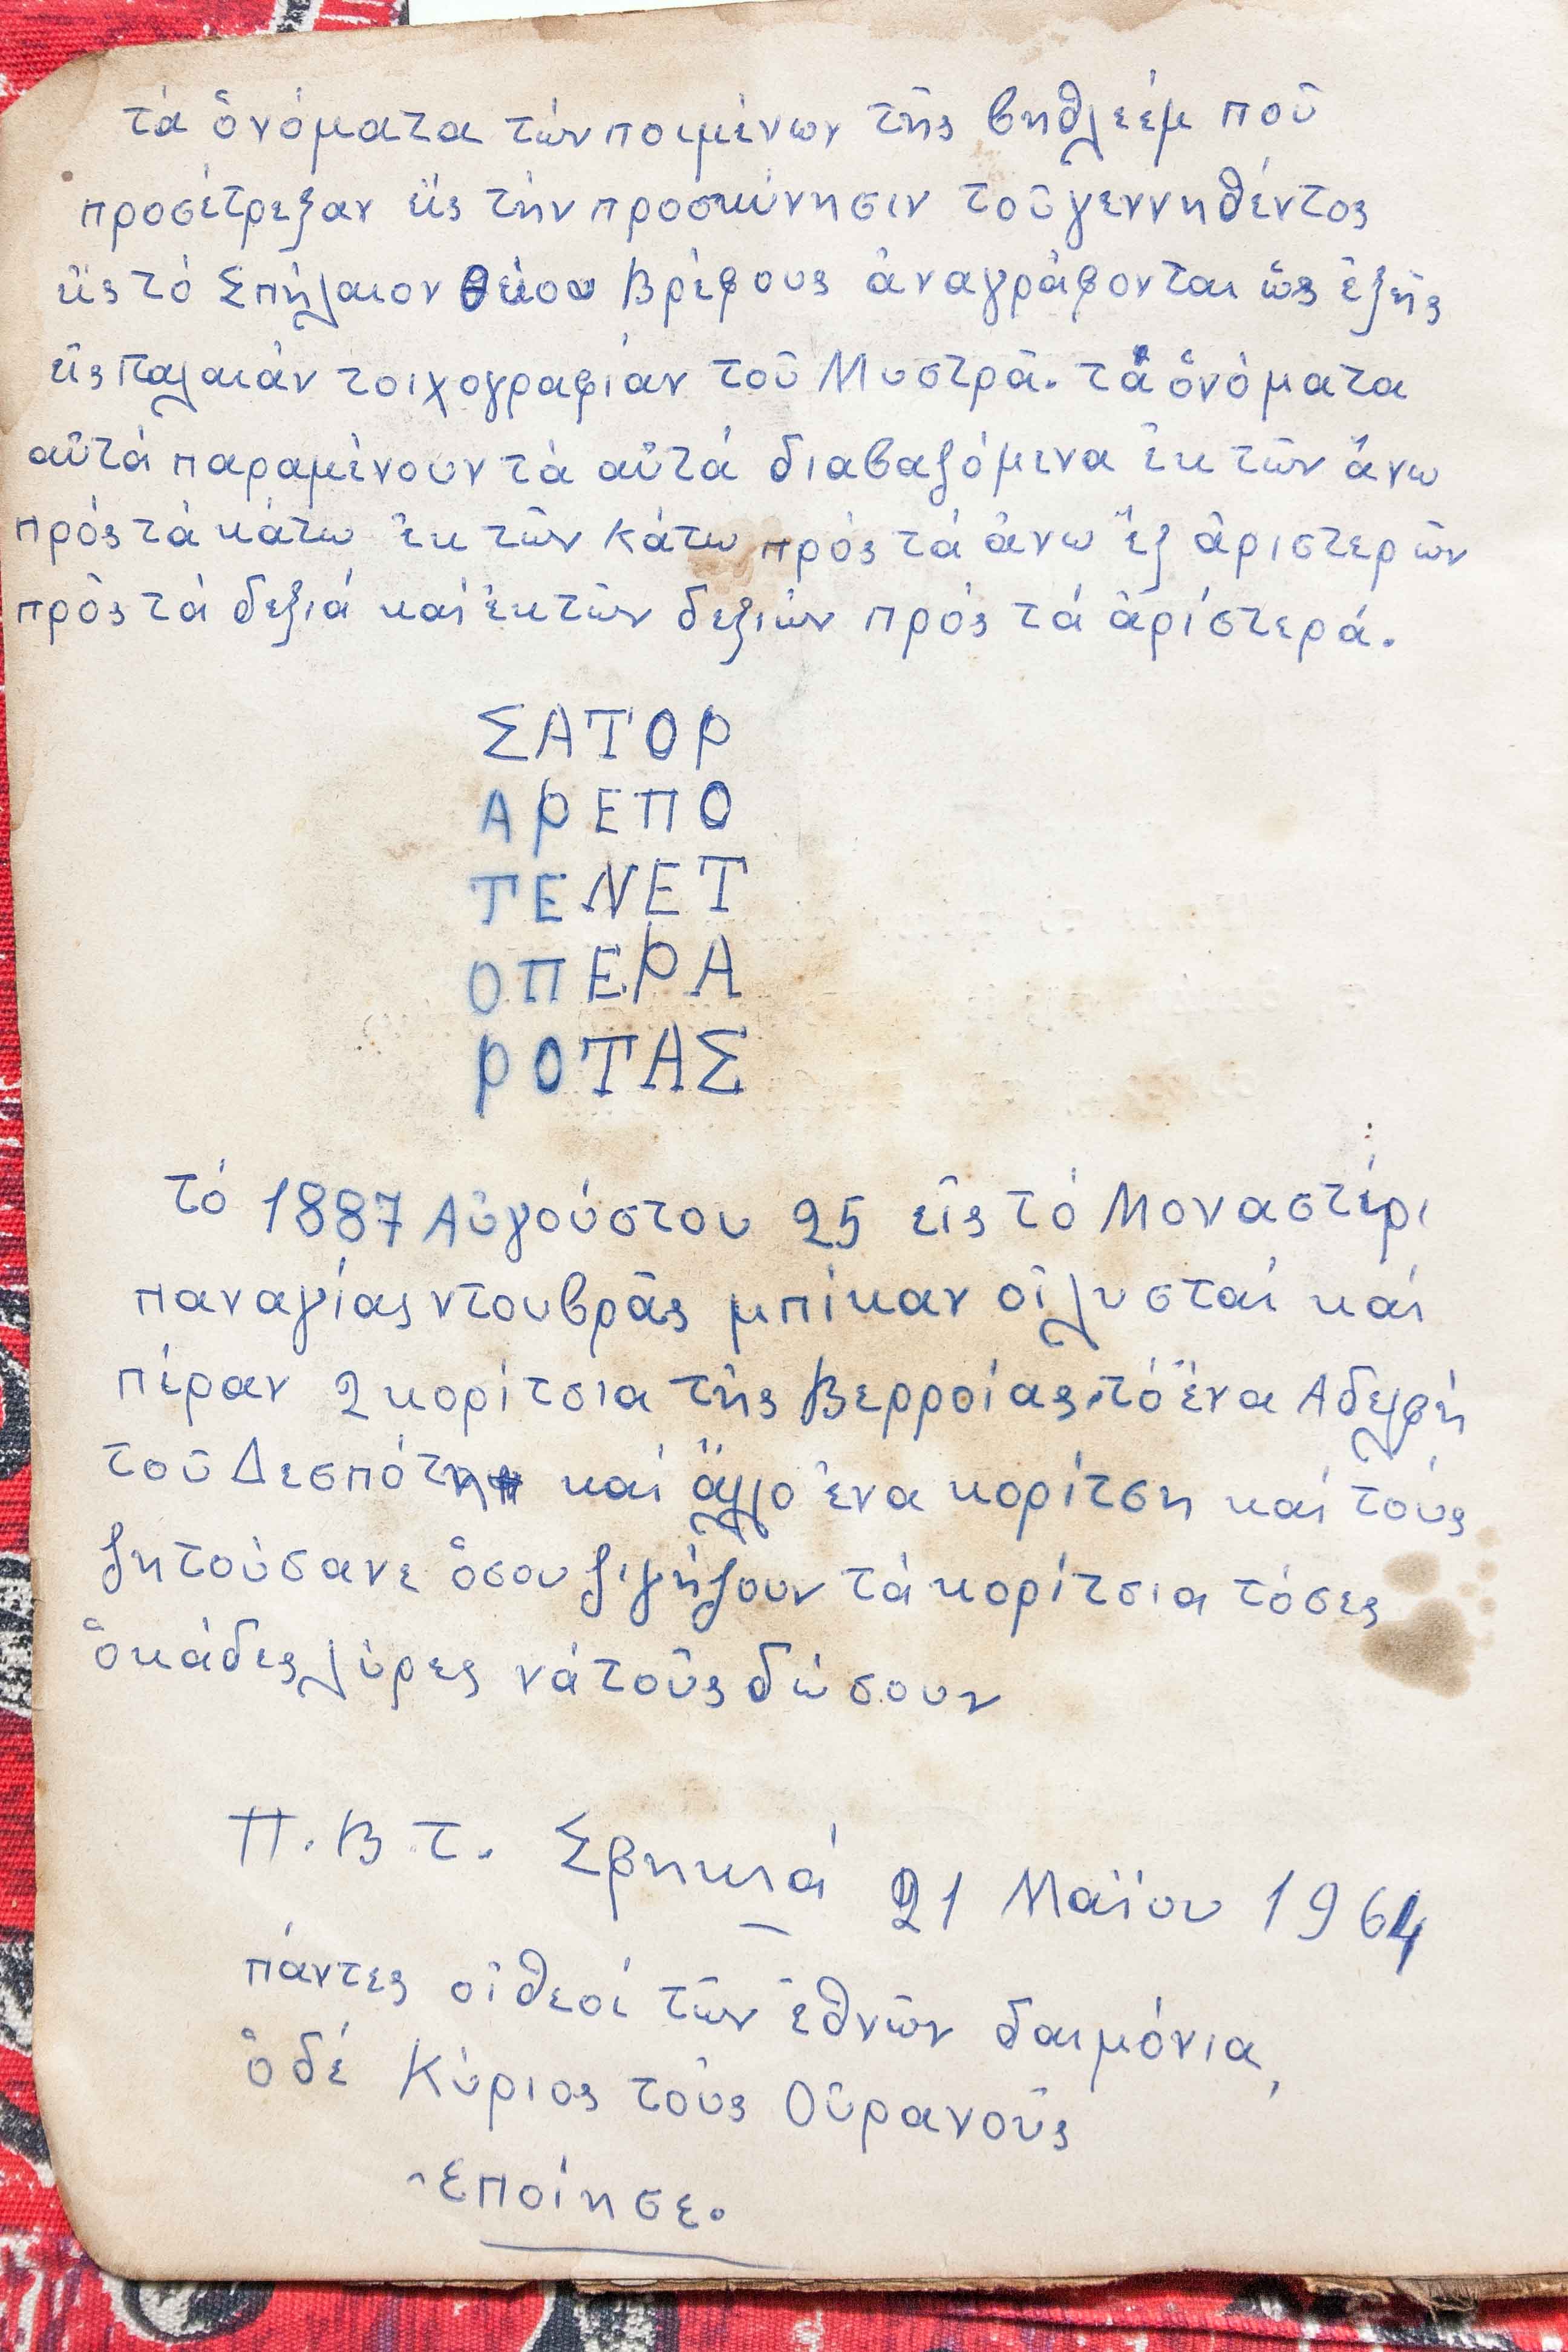 τά ὀνόματα τών ποιμένων τῆς βηθλεέμ ποῦ
προσέτρεξαν εἰς τήν προσκύνησιν τοῦ γεννηθέντος
εἰς τό Σπήλαιον θείου Βρέφους ἀναγράφονται ὡς ἑξῆς
εἰς παλαιάν τοιχογραφίαν τοῦ Μυστρᾶ. τά ὀνόματα
αὐτά παραμένουν τά αὐτά διαβαζόμενα ἐκ τῶν ἄνω
πρός τά κάτω ἐκ τῶν κάτω πρός τά ἄνω ἐξ ἀριστερῶν
πρός τά δεξιά καί ἐκ τῶν δεξιών πρός τά ἀρίστερά.
ΣΑΤΟΡ
ΑΡΕΠΟ
ΤΕΝΕΤ
ΟΠΕΡΑ
ΡΟΤΑΣ
τό 1887 Αὐγούστου 25 εἰς τό Μοναστέρι
παναγίας ντουβρᾶς μπίκαν οἱ λυσταί καί
πέραν 2 κορίτσια τῆς Βερροίας. τό ἕνα Αδελφή
τοῦ Δεσπότη καί ἄλλο ἕνα κορίτση καί τούς
ζητούσανε ὅσου ζιγήζουν τά κορίτσια τόσες
ὀκάδες λύρες νά τοῦς δώσουν
Π. Β Τ. Σβηκιά 21 Μαΐου 1964
πάντες οἱ θεοί τῶν ἐθνῶν δαιμόνια,
ὁ δέ Κύριος τοῦς Οὐρανοῦς
ἐποίησε.